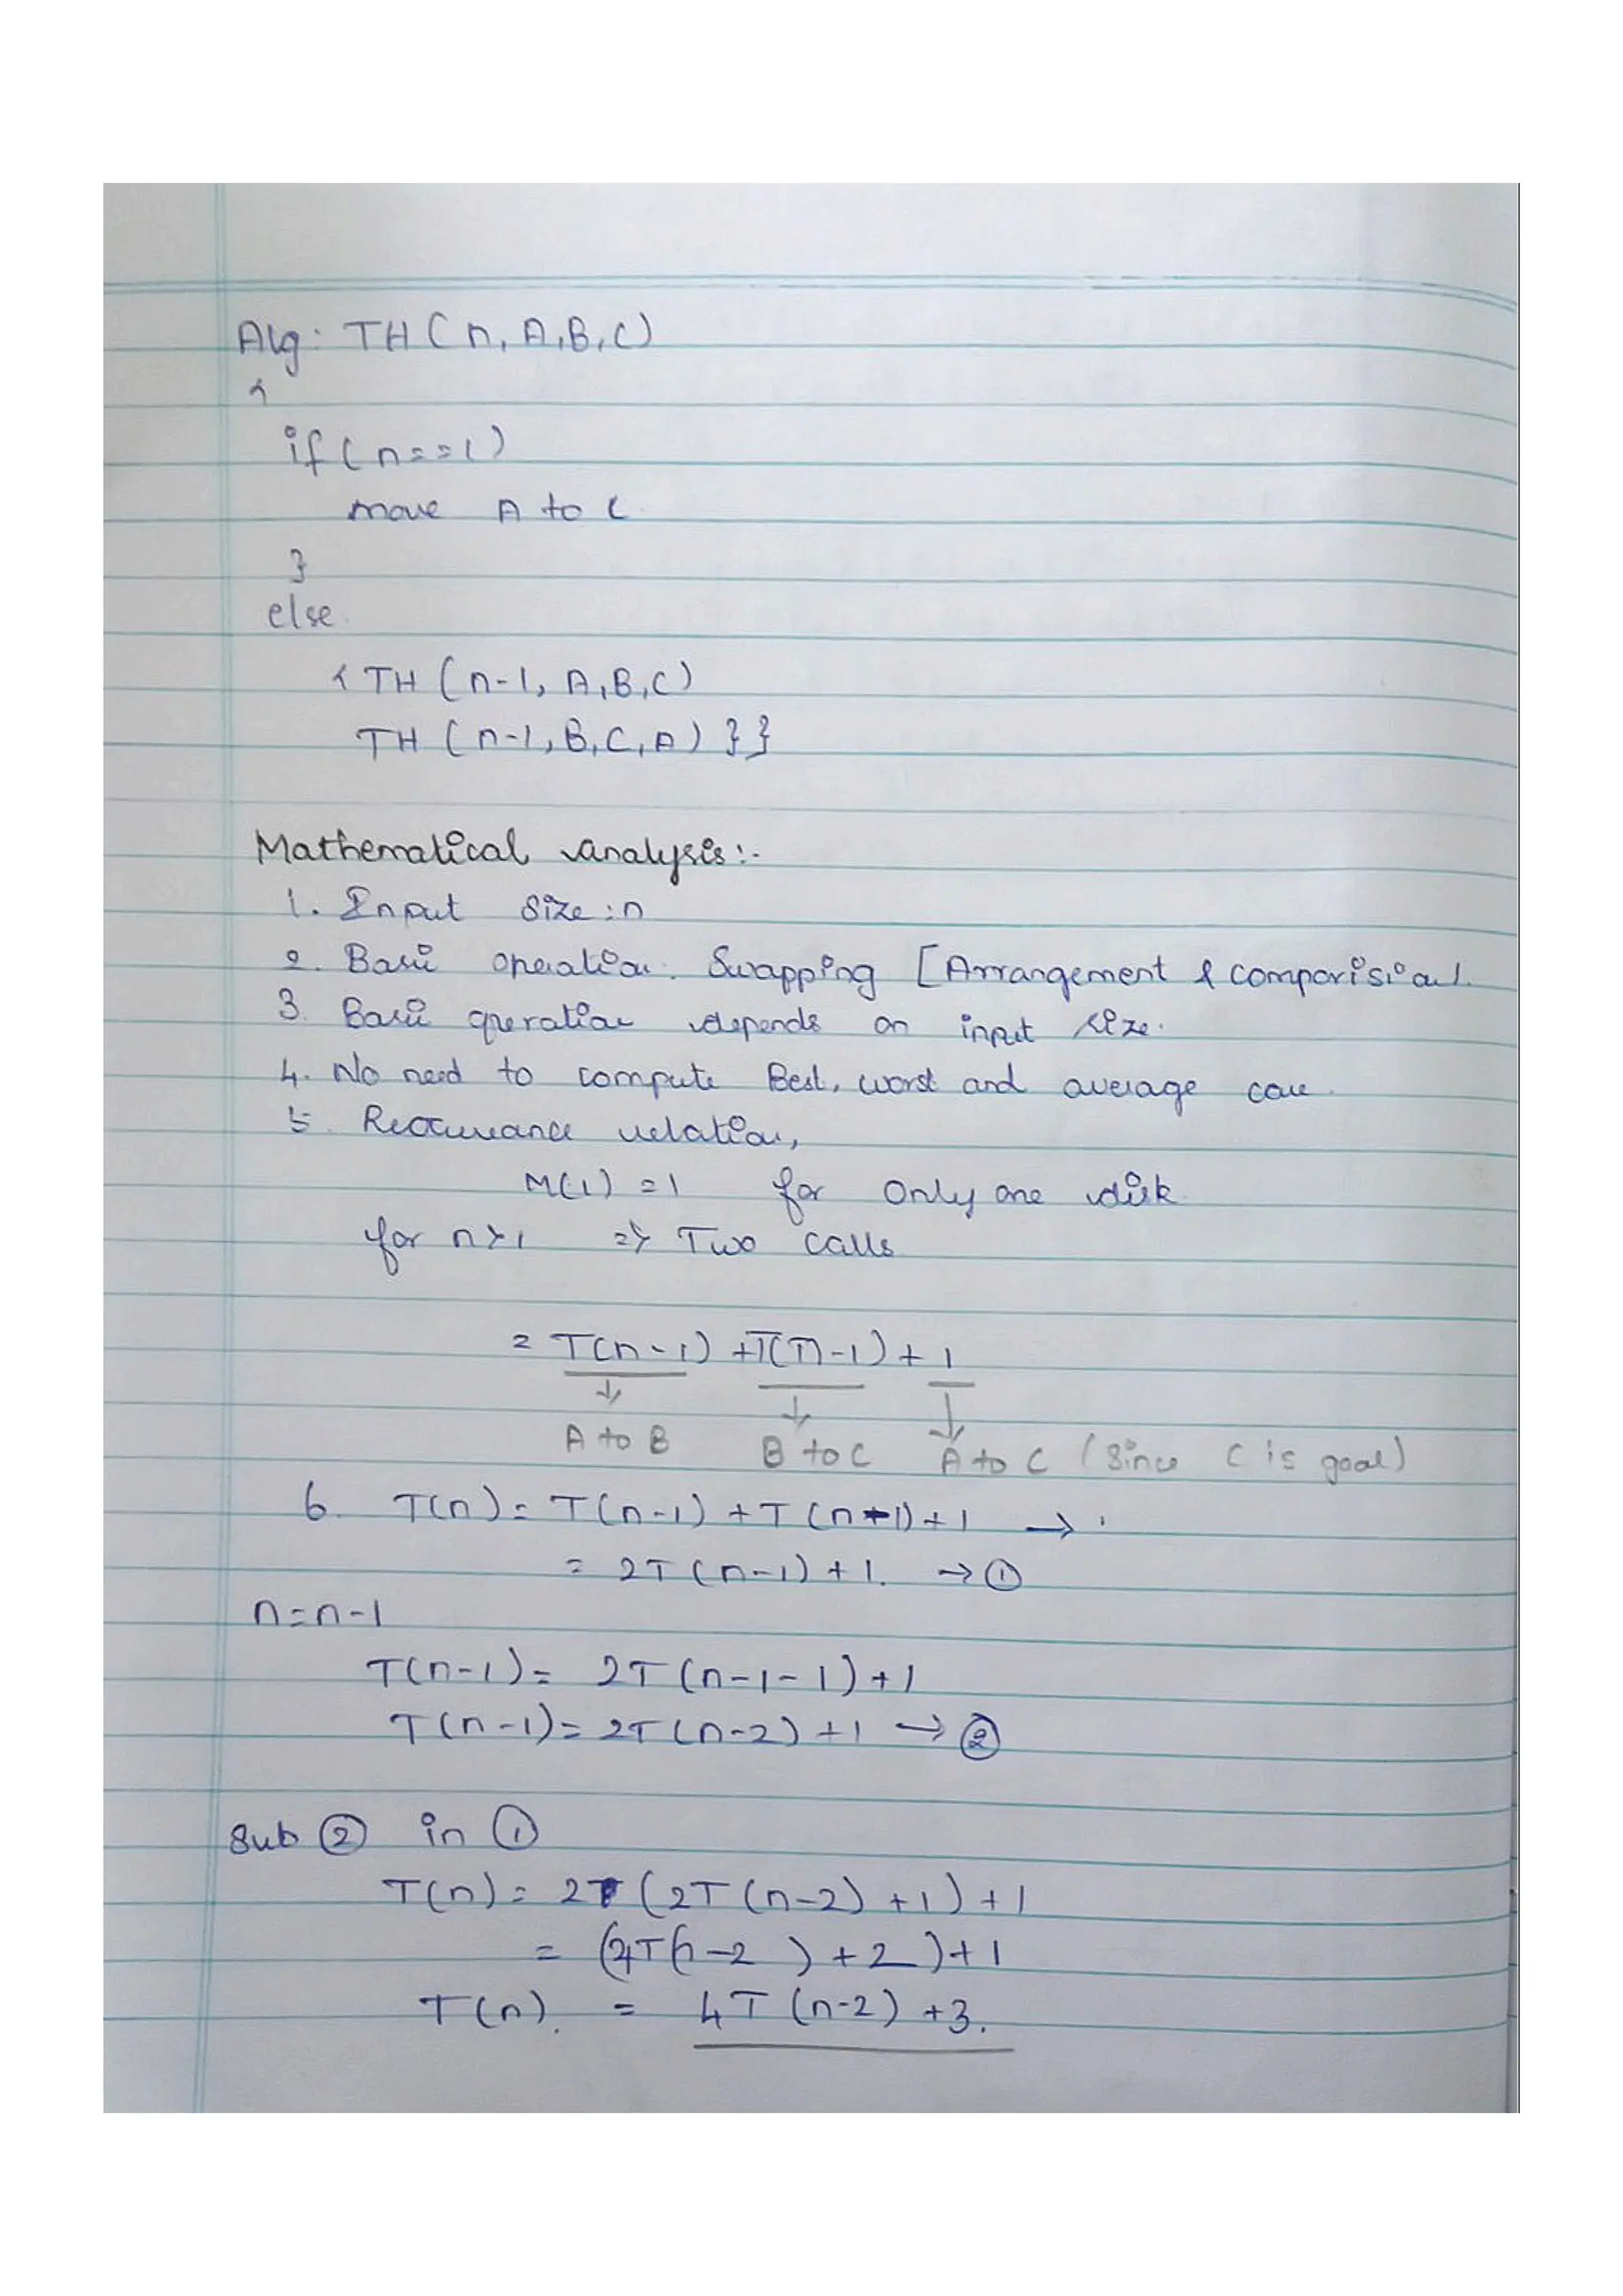 Alg: TH(n, A,B,C)
{
if(n==1)
move A to C
}
else
{TH(n-1, A,B,C)
TH(n-1,B,C,A)}}
Mathematical analysis:-
1. Input Size:n
2. Basic operation. Swapping [Arrangement & comporision].
3. Basic operation depends on input size.
4. No need to compute Best, worst and average case.
5. Reccurance relation,
M(1)=1 for only one disk
for n>1 => Two calls
= T(n-1) +T(n-1)+1
↓ ↓ ↓
A to B B to C A to C (Since C is goal)
6. T(n)= T(n-1)+T(n-1)+1 →
= 2T(n-1)+1. →①
n=n-1
T(n-1)= 2T(n-1-1)+1
T(n-1)=2T(n-2)+1 →②
Sub ② in ①
T(n)= 2(2T(n-2)+1)+1
= (4T(n-2)+2)+1
T(n). = 4T(n-2)+3.